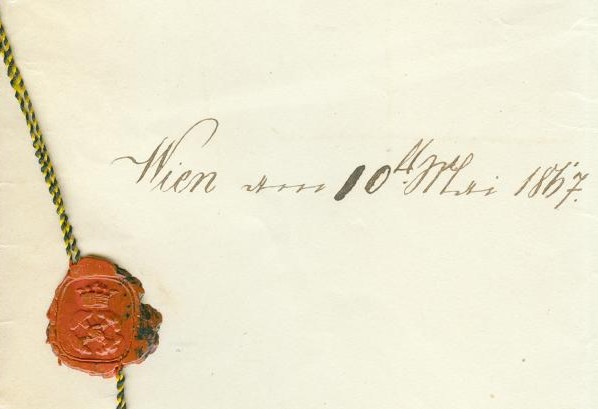 Wien am 10ten Mai 1867.